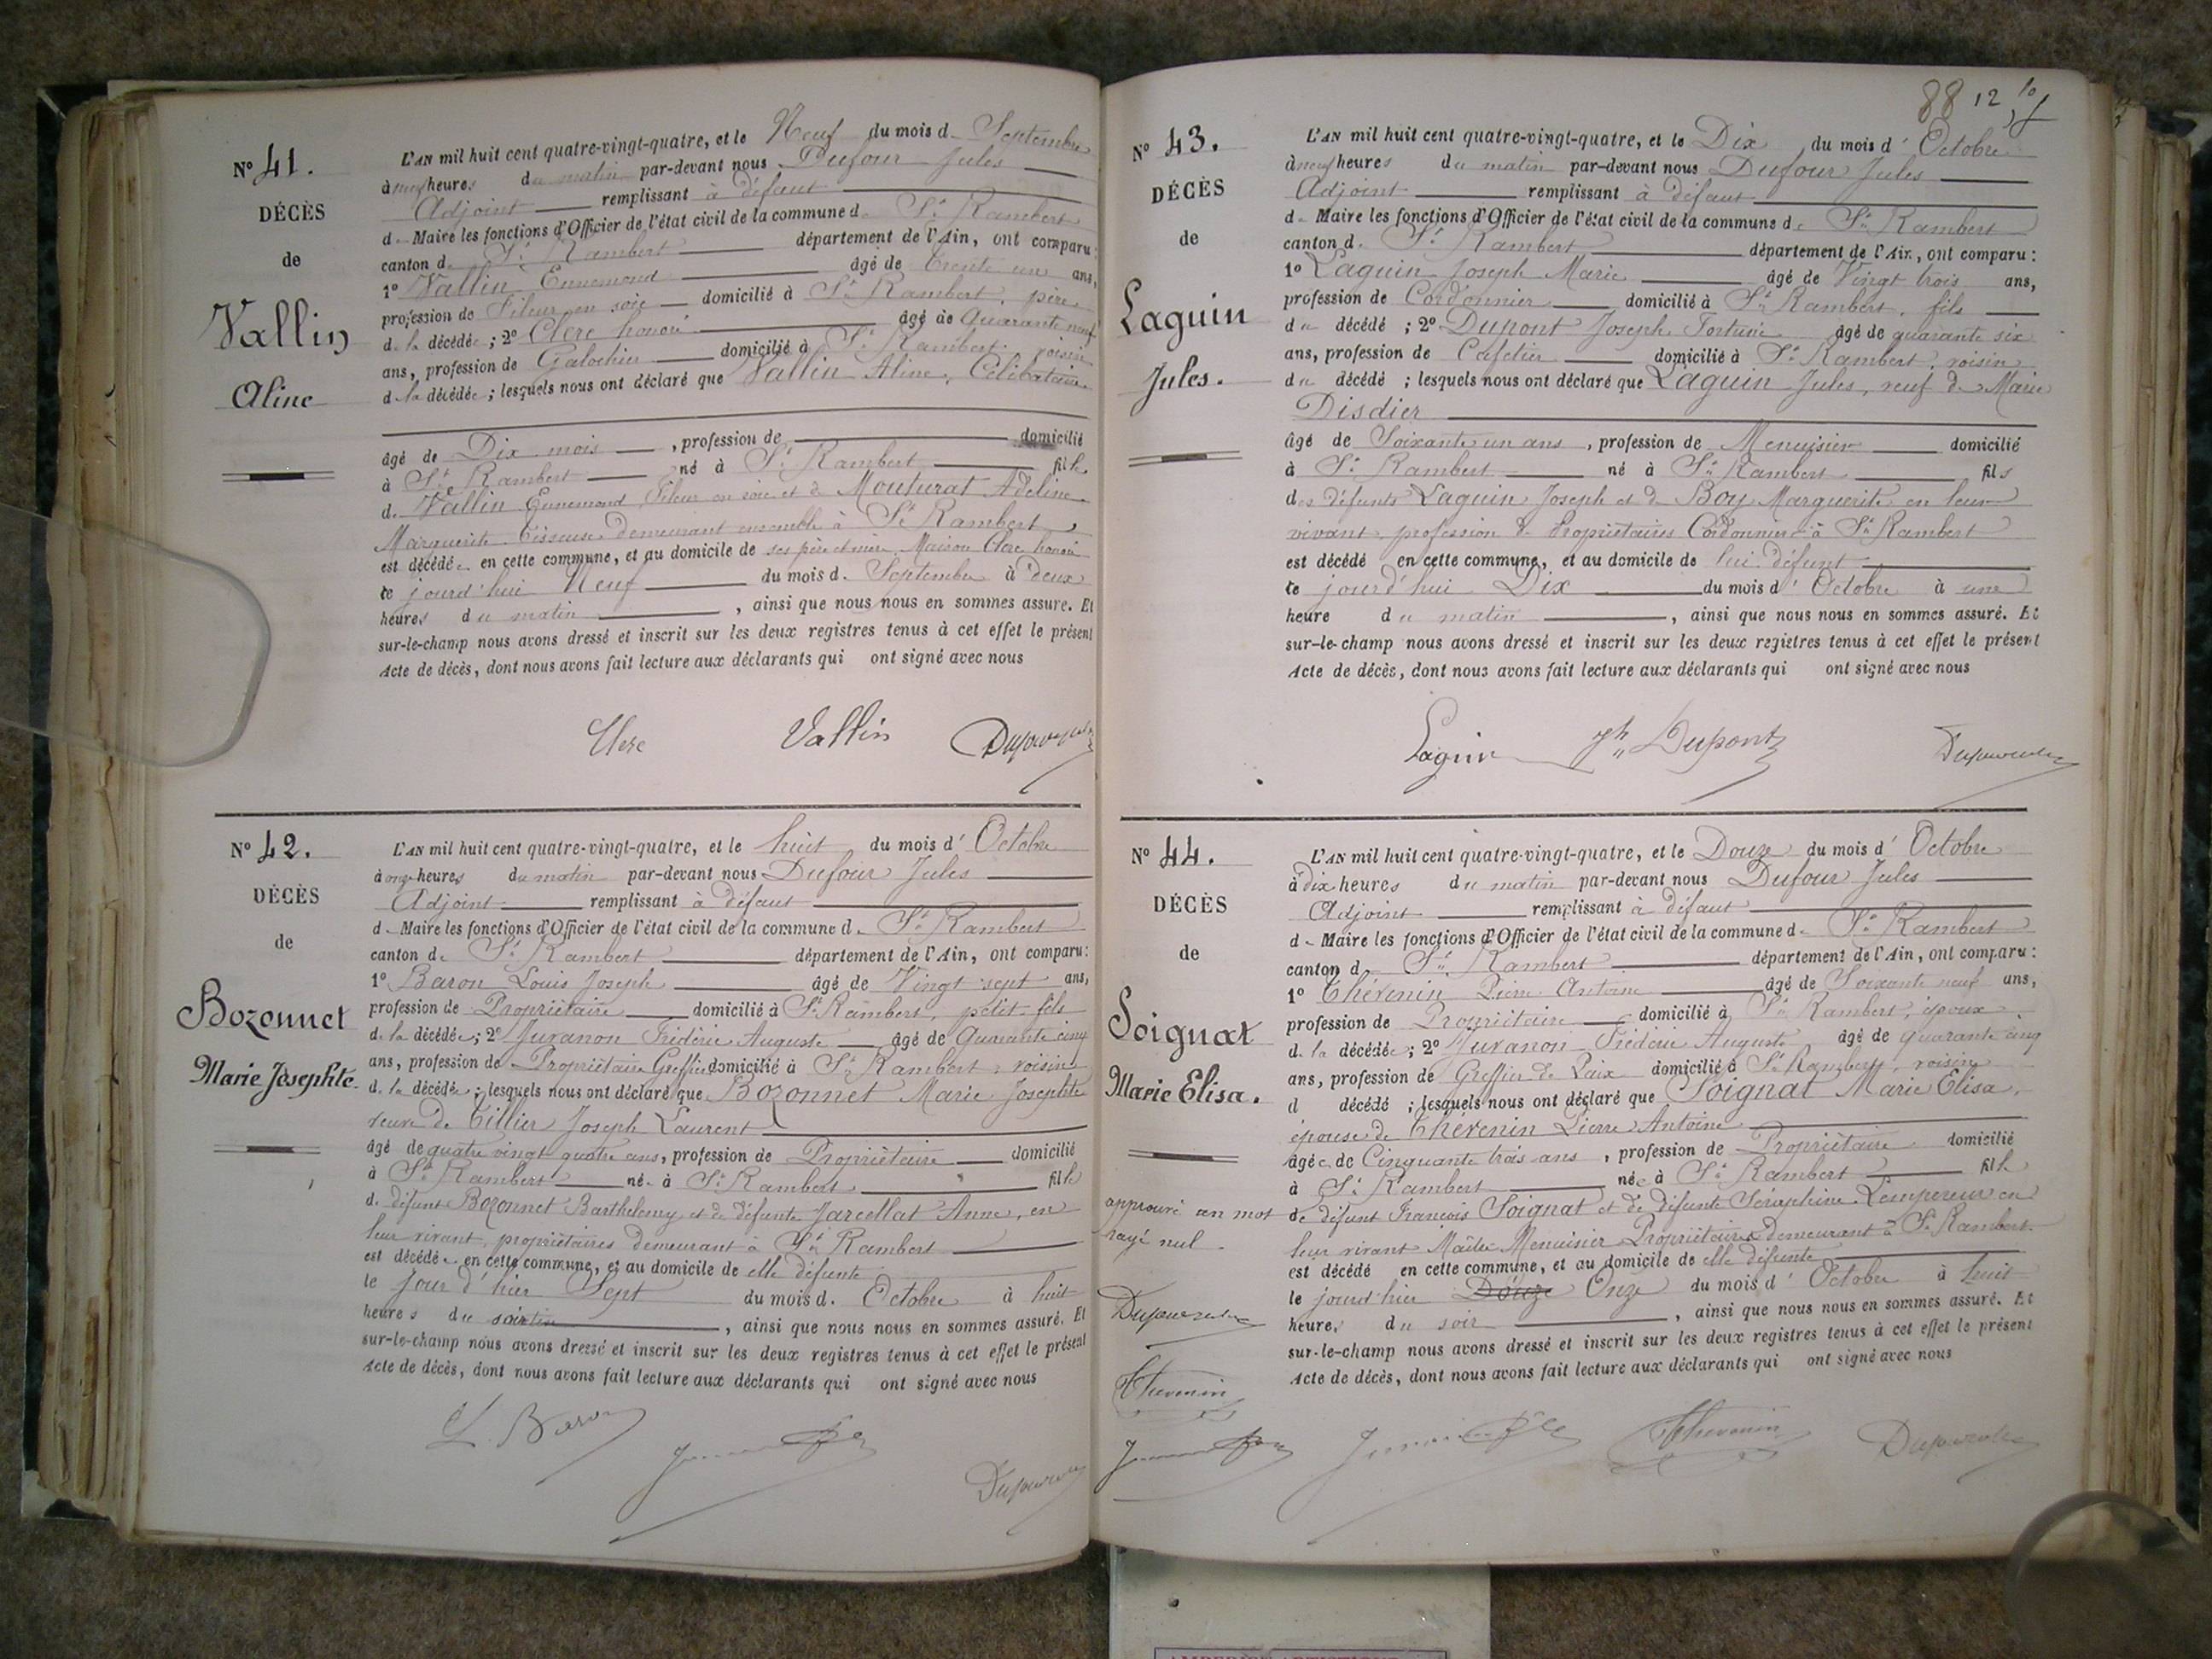 N° 41.
DÉCÈS
de
Vallin
Aline
L'AN mil huit cent quatre-vingt-quatre, et le Neuf du mois d Septembre
à neuf heures du matin par-devant nous Dufour Jules
Adjoint remplissant à défaut
d Maire les fonctions d'Officier de l'état civil de la commune d St Rambert
canton d St Rambert département de l'Ain, ont comparu:
1° Vallin Ennemond âgé de Trente un ans,
profession de Fileur en soie domicilié à St Rambert, père
d la décédée; 2° Clerc honoré âgé de Quarante neuf
ans, profession de Galochier domicilié à St Rambert, voisin
d la décédée; lesquels nous ont déclaré que Vallin Aline, Célibataire
âgé de Dix mois, profession de domicilié
à St Rambert né à St Rambert fille
d. Vallin Ennemond, Fileur en soie et de Mouturat Adeline
Marguerite Tisseuse demeurant ensemble à St Rambert
est décédée en cette commune, et au domicile de ses père et mère, Maison Clerc honoré
le jourd'hui Neuf du mois d. Septembre à deux
heures du matin, ainsi que nous nous en sommes assuré. Et
sur-le-champ nous avons dressé et inscrit sur les deux registres tenus à cet effet le présent
Acte de décès, dont nous avons fait lecture aux déclarants qui ont signé avec nous
Clerc Vallin
N° 42.
DÉCÈS
de
Bozonnet
Marie Josephte
L'AN mil huit cent quatre-vingt-quatre, et le huit du mois d' Octobre
à onze heures du matin par-devant nous Dufour Jules
Adjoint remplissant à défaut
d Maire les fonctions d'Officier de l'état civil de la commune d St Rambert
canton de St Rambert département de l'Ain, ont comparu:
1° Baron Louis Joseph âgé de Vingt sept ans,
profession de Propriétaire domicilié à St Rambert, petit-fils
d. la décédée; 2° Juvanon Frédéric Auguste âgé de Quarante cinq
ans, profession de Propriétaire Greffier domicilié à St Rambert, voisin
d. la décédée; lesquels nous ont déclaré que Bozonnet Marie Josephte
veuve de Tillier Joseph Laurent
âgé de quatre vingt quatre ans, profession de Propriétaire domicilié
à St Rambert née à St Rambert fille
d. défunt Bozonnet Barthelemy et de défunte Jarcellat Anne, en
leur vivant, propriétaires demeurant à St Rambert
est décédée en cette commune, et au domicile de elle défunte
le jour d'hier Sept du mois d. Octobre à huit
heures du soir, ainsi que nous nous en sommes assuré. Et
sur-le-champ nous avons dressé et inscrit sur les deux registres tenus à cet effet le présent
Acte de décès, dont nous avons fait lecture aux déclarants qui ont signé avec nous
L. Baron
88 12
N° 43.
DÉCÈS
de
Laguin
Jules.
L'AN mil huit cent quatre-vingt-quatre, et le Dix du mois d' Octobre
à neuf heures du matin par-devant nous Dufour Jules
Adjoint remplissant à défaut
d Maire les fonctions d'Officier de l'état civil de la commune d. St Rambert
canton d. St Rambert département de l'Ain, ont comparu:
1° Laguin Joseph Marie âgé de Vingt trois ans,
profession de Cordonnier domicilié à St Rambert, fils
du décédé; 2° Dupont Joseph Fortuné âgé de quarante six
ans, profession de Cafetier domicilié à St Rambert, voisin
du décédé; lesquels nous ont déclaré que Laguin Jules, veuf de Marie
Disdier
âgé de Soixante un ans, profession de Menuisier domicilié
à St Rambert né à St Rambert fils
des défunts Laguin Joseph et de Boy Marguerite en leur
vivant, profession de Propriétaires Cordonnier à St Rambert
est décédé en cette commune, et au domicile de lui défunt
le jourd'hui Dix du mois d' Octobre à une
heure du matin, ainsi que nous nous en sommes assuré. Et
sur-le-champ nous avons dressé et inscrit sur les deux registres tenus à cet effet le présent
Acte de décès, dont nous avons fait lecture aux déclarants qui ont signé avec nous
Laguin Jh Dupont
N° 44.
DÉCÈS
de
Soignat
Marie Elisa.
approuvé un mot
rayé nul.
Thevenin
L'AN mil huit cent quatre-vingt-quatre, et le Douze du mois d' Octobre
à dix heures du matin par-devant nous Dufour Jules
Adjoint remplissant à défaut
d Maire les fonctions d'Officier de l'état civil de la commune d. St Rambert
canton d St Rambert département de l'Ain, ont comparu:
1° Thévenin Pierre Antoine âgé de Soixante neuf ans,
profession de Propriétaire domicilié à St Rambert, époux
d. la décédée; 2° Juvanon Frédéric Auguste âgé de quarante cinq
ans, profession de Greffier de Paix domicilié à St Rambert, voisin
d décédé; lesquels nous ont déclaré que Soignat Marie Elisa,
épouse de Thévenin Pierre Antoine
âgée de Cinquante trois ans, profession de Propriétaire domicilié
à St Rambert née à St Rambert fille
de défunt François Soignat et de défunte Séraphine Lempereur en
leur vivant Maître Menuisier Propriétaires demeurant à St Rambert.
est décédé en cette commune, et au domicile de elle défunte
le jourd'hier Douze Onze du mois d' Octobre à huit
heures du soir, ainsi que nous nous en sommes assuré. Et
sur-le-champ nous avons dressé et inscrit sur les deux registres tenus à cet effet le présent
Acte de décès, dont nous avons fait lecture aux déclarants qui ont signé avec nous
Thevenin